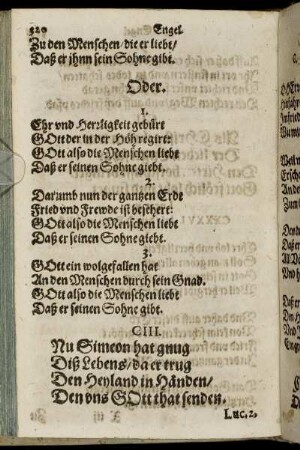 520 Engel.
Zu den Menschen / die er liebt /
Daß er jhnn sein Sohne gibt.
Oder.
1.
Ehr vnd Herꝛligkeit gebürt
GOtt der in der Höh regirt:
GOtt also die Menschen liebt
Daß er seinen Sohne giebt.
2.
Darumb nun der gantzen Erdt
Fried vnd Frewde ist beschert:
GOtt also die Menschen liebt
Daß er seinen Sohne giebt.
3.
GOtt ein wolgefallen hat
An den Menschen durch sein Gnad.
GOtt also die Menschen liebt
Daß er seinen Sohne gibt.
CIII.
Nu Simeon hat gnug
Diß Lebens / da er trug
Den Heyland in Händen /
Den vns GOtt that senden.
Luc. 2.